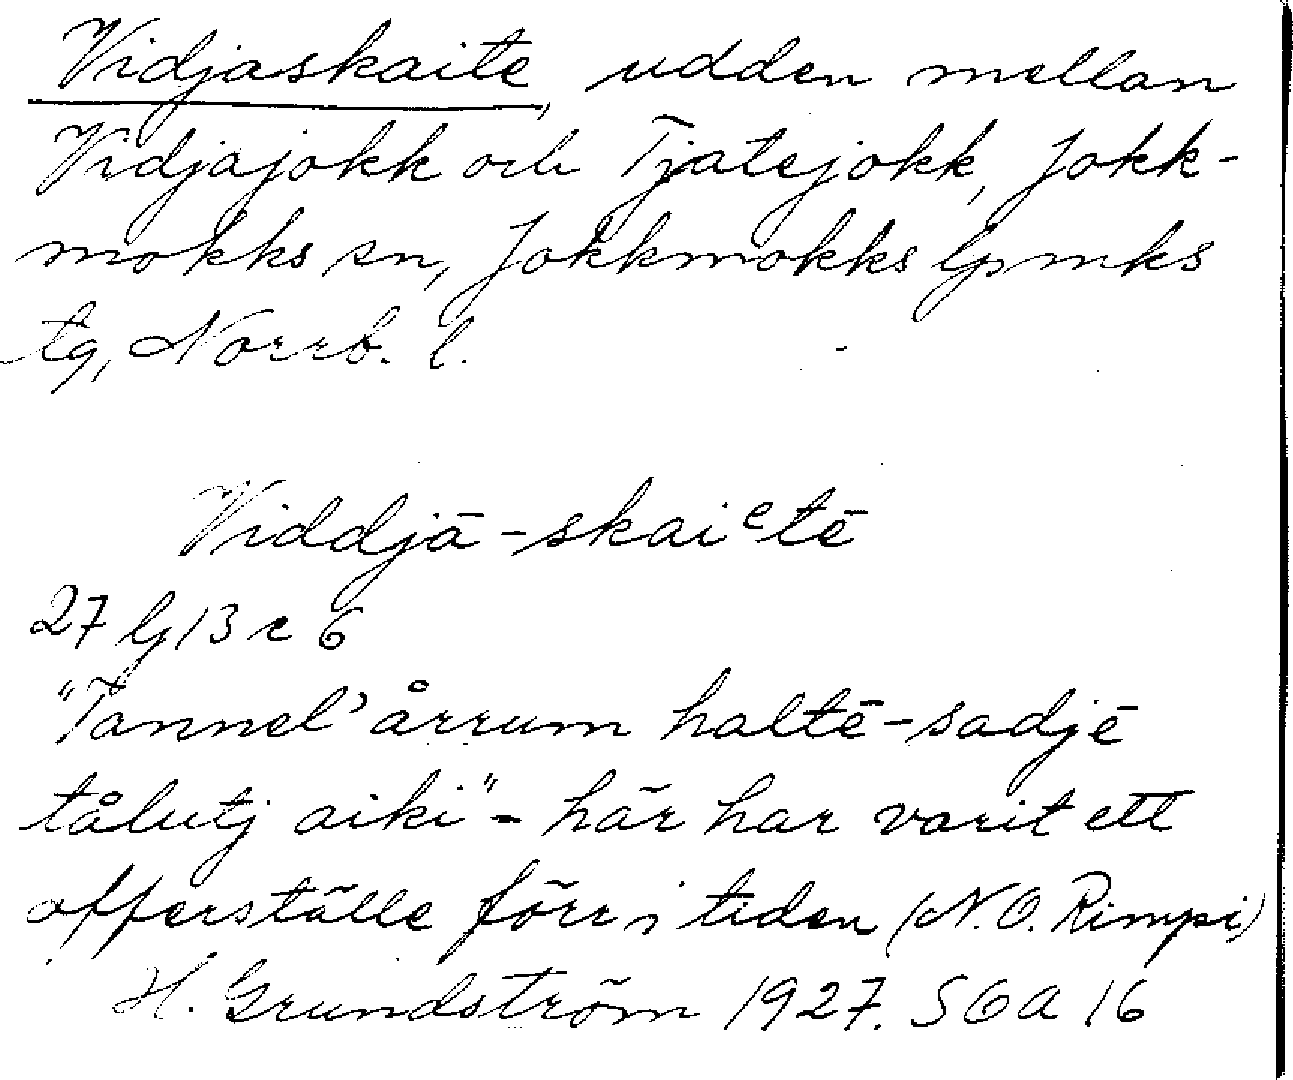 Vidjaskaite, udden mellan
Vidjajokk och Tjatejokk, Jokk-
mokks sn, Jokkmokks lpmks
tg, Norrb. l.
Viddjā-skaiᵉtē
27 lj 13 c 6
"Tannel' årrum haltē-sadjē
tålutj aiki" - här har varit ett
offerställe förr i tiden (N.O. Rimpi)
H. Grundström 1927. SOA 16